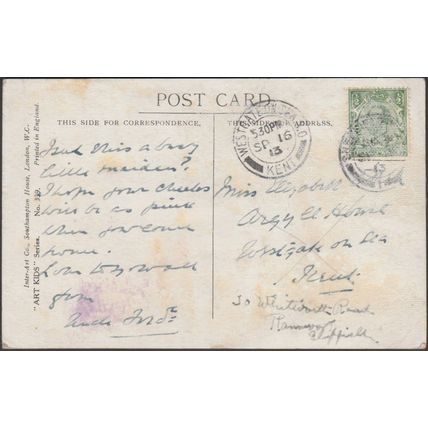 POST CARD.
THIS SIDE FOR CORRESPONDENCE.
THIS SIDE FOR ADDRESS.
"ART KIDS" Series. No. 329.
Inter-Art Co., Southampton House, London, W.C. Printed in England.
WESTGATE ON SEA
5 30 PM
SP 16
13
KENT
this a busy
little maiden?
I hope your cheeks
will be as pink
when you come
home.
Love to you all
from
Uncle
Miss Elizabeth
Argyll House
Westgate on Sea
Kent
30 Whitworth Road